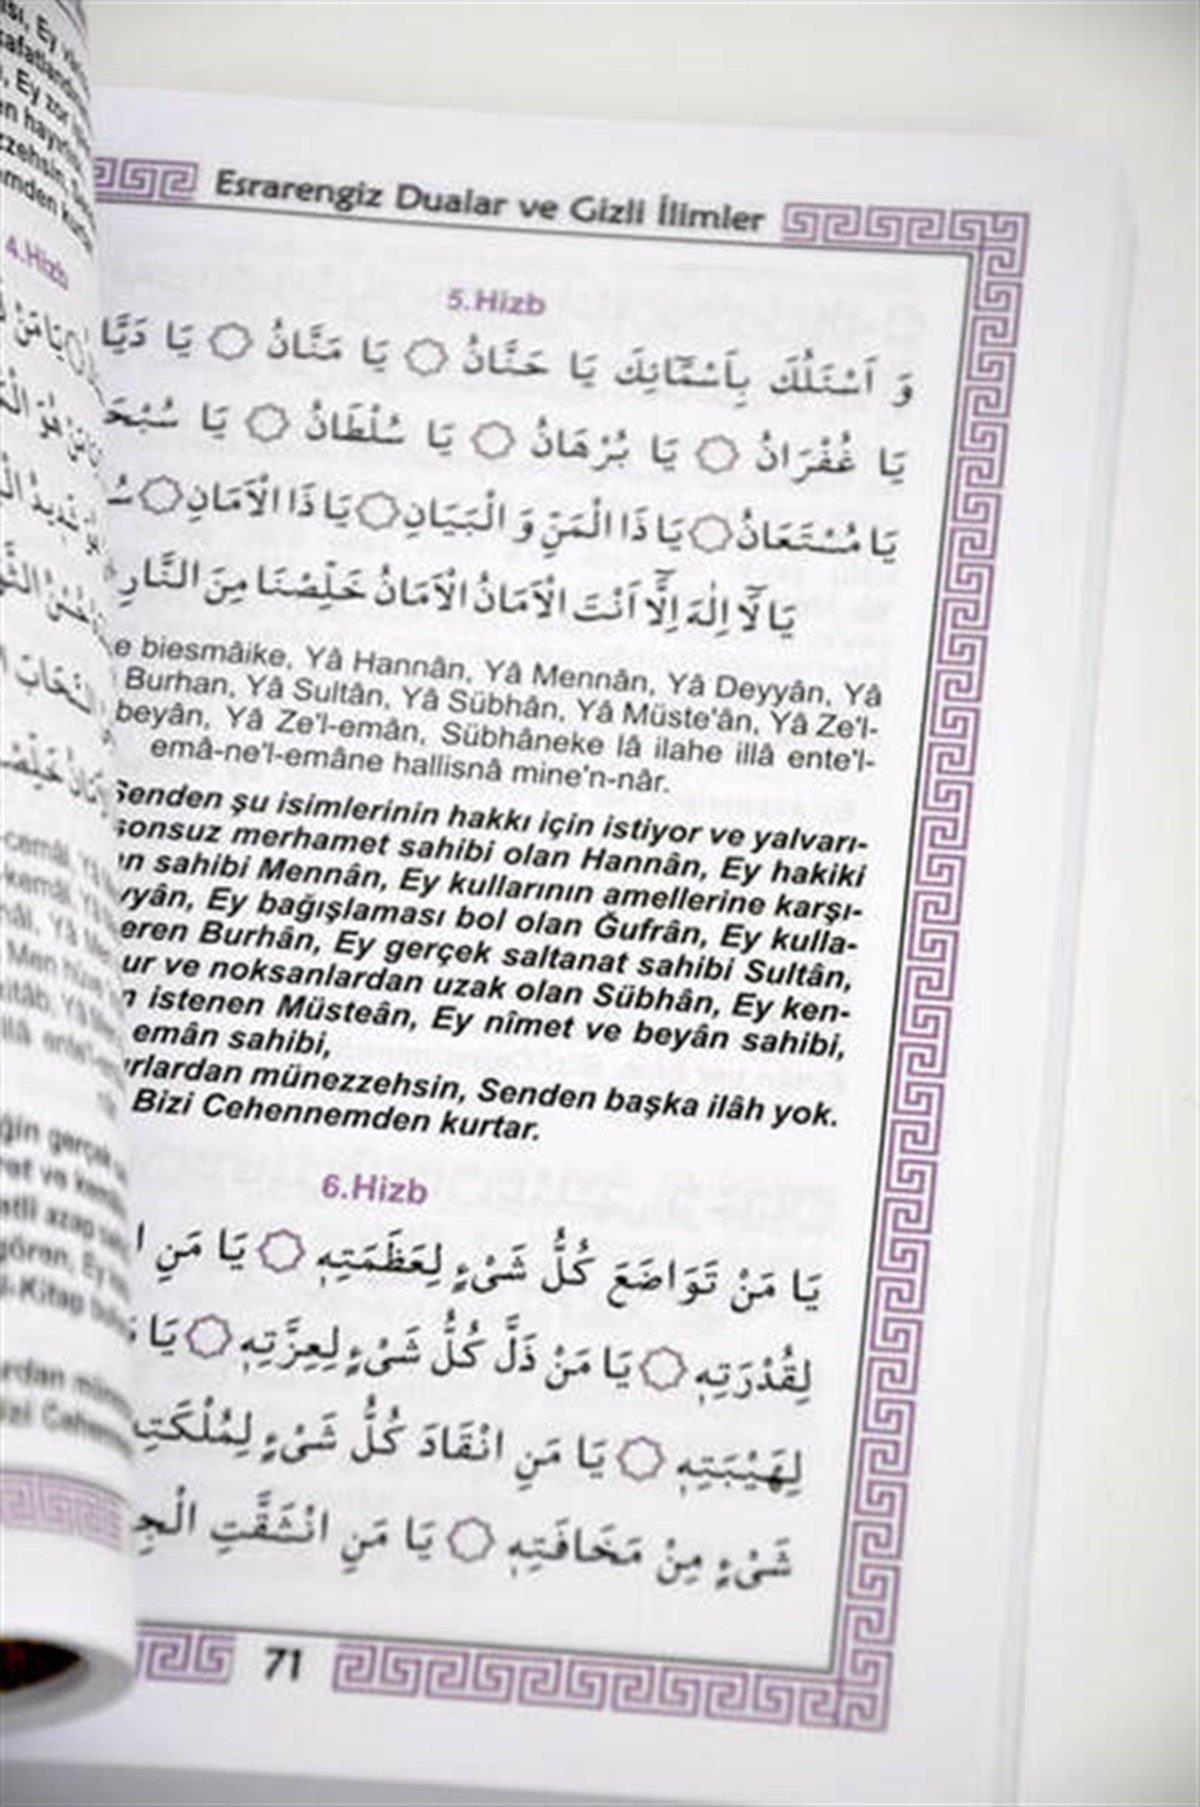 Esrarengiz Dualar ve Gizli İlimler
5.Hizb
وَ اَسْئَلُكَ بِاَسْمَٓائِكَ يَا حَنَّانُ يَا مَنَّانُ يَا دَيَّا
يَا غُفْرَانُ يَا بُرْهَانُ يَا سُلْطَانُ يَا سُبْحَ
يَا مُسْتَعَانُ يَا ذَا الْمَنِّ وَ الْبَيَانِ يَا ذَا الْاَمَانِ سُ
يَا لَٓا اِلٰهَ اِلَّٓا اَنْتَ الْاَمَانُ الْاَمَانُ خَلِّصْنَا مِنَ النَّارِ
e biesmâike, Yâ Hannân, Yâ Mennân, Yâ Deyyân, Yâ
Burhan, Yâ Sultân, Yâ Sübhân, Yâ Müste'ân, Yâ Ze'l-
beyân, Yâ Ze'l-emân, Sübhâneke lâ ilahe illâ ente'l-
emâ-ne'l-emâne hallisnâ mine'n-nâr.
Senden şu isimlerinin hakkı için istiyor ve yalvarı-
sonsuz merhamet sahibi olan Hannân, Ey hakiki
n sahibi Mennân, Ey kullarının amellerine karşı-
yyân, Ey bağışlaması bol olan Ğufrân, Ey kulla-
eren Burhân, Ey gerçek saltanat sahibi Sultân,
ur ve noksanlardan uzak olan Sübhân, Ey ken-
n istenen Müsteân, Ey nîmet ve beyân sahibi,
emân sahibi,
urlardan münezzehsin, Senden başka ilâh yok.
Bizi Cehennemden kurtar.
6.Hizb
يَا مَنْ تَوَاضَعَ كُلُّ شَىْءٍ لِعَظَمَتِهٖ يَا مَنِ ا
لِقُدْرَتِهٖ يَا مَنْ ذَلَّ كُلُّ شَىْءٍ لِعِزَّتِهٖ يَا مَ
لِهَيْبَتِهٖ يَا مَنِ انْقَادَ كُلُّ شَىْءٍ لِمُلْكَتِ
شَىْءٍ مِنْ مَخَافَتِهٖ يَا مَنِ انْشَقَّتِ الْجِ
71
4.Hizb